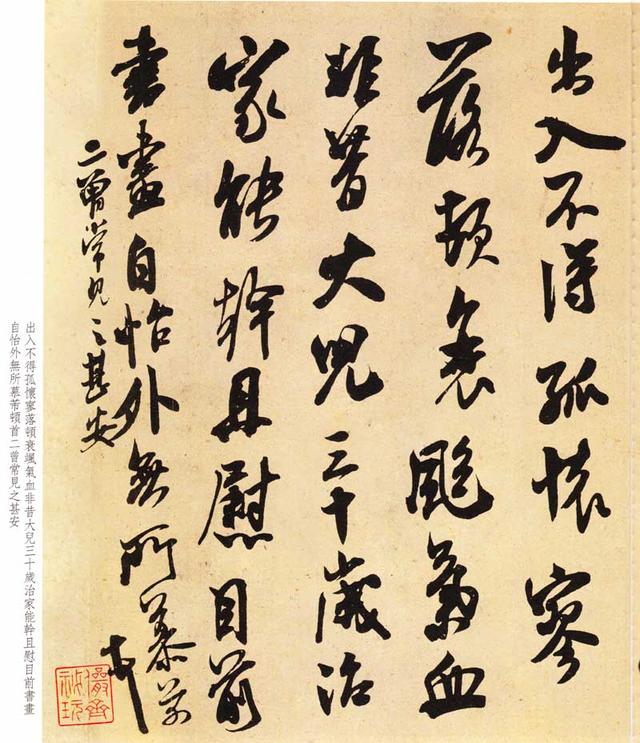 出入不得孤懷寥
落頓衰颯氣血
非昔大兒三十歲治
家能幹且慰目前
書畫自怡外無所慕芾
頓首
二曾常見之甚安
出入不得孤懷寥落頓衰颯氣血非昔大兒三十歲治家能幹且慰目前書畫
自怡外無所慕芾頓首二曾常見之甚安